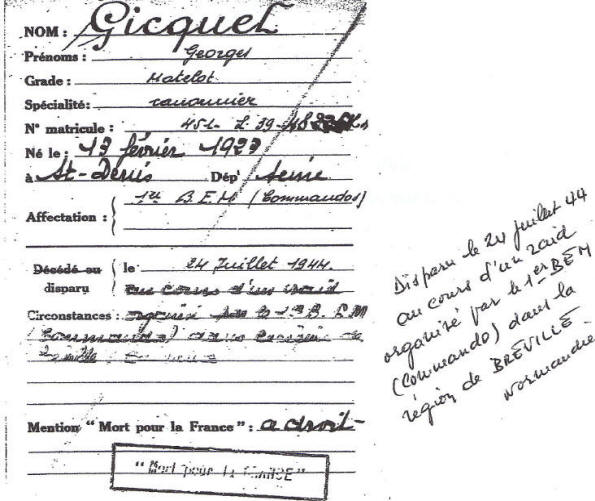 NOM : Gicquel
Prénoms : Georges
Grade : Matelot
Spécialité: canonnier
N° matricule : 451- L. 39-
Né le : 13 février 1923
à St-Denis Dép' Seine
Affectation : 1er B.F.M (Commandos)
Décédé ou disparu le 24 Juillet 1944.
au cours d'un raid
Circonstances : organisé par le 1er B. F.M
(Commandos) dans la région de
Mention " Mort pour la France " : a droit-
" Mort pour la FRANCE "
Disparu le 24 juillet 44
au cours d'un raid
organisé par le 1er BFM
(Commando) dans la
région de BRÉVILLE
Normandie